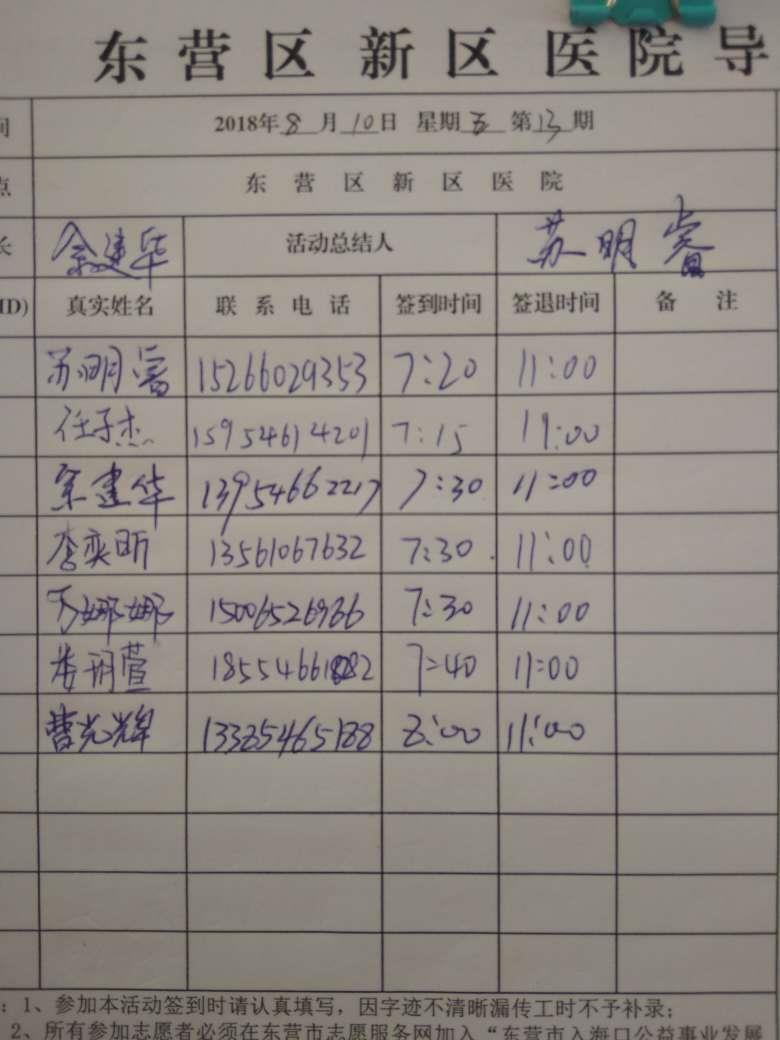 东营区新区医院导
间 2018年8月10日 星期五 第13期
点 东营区新区医院
长 余建华 活动总结人 苏明睿
ID) 真实姓名 联系电话 签到时间 签退时间 备注
苏明睿 15266029353 7:20 11:00
任子杰 15954614201 7:15 11:00
余建华 13954662217 7:30 11:00
李奕昕 13561067632 7:30 11:00
万娜娜 15006526966 7:30 11:00
7:40 11:00
曹光辉 13385465188 8:00 11:00
：1、参加本活动签到时请认真填写，因字迹不清晰漏传工时不予补录；
2、所有参加志愿者必须在东营市志愿服务网加入“东营市入海口公益事业发展